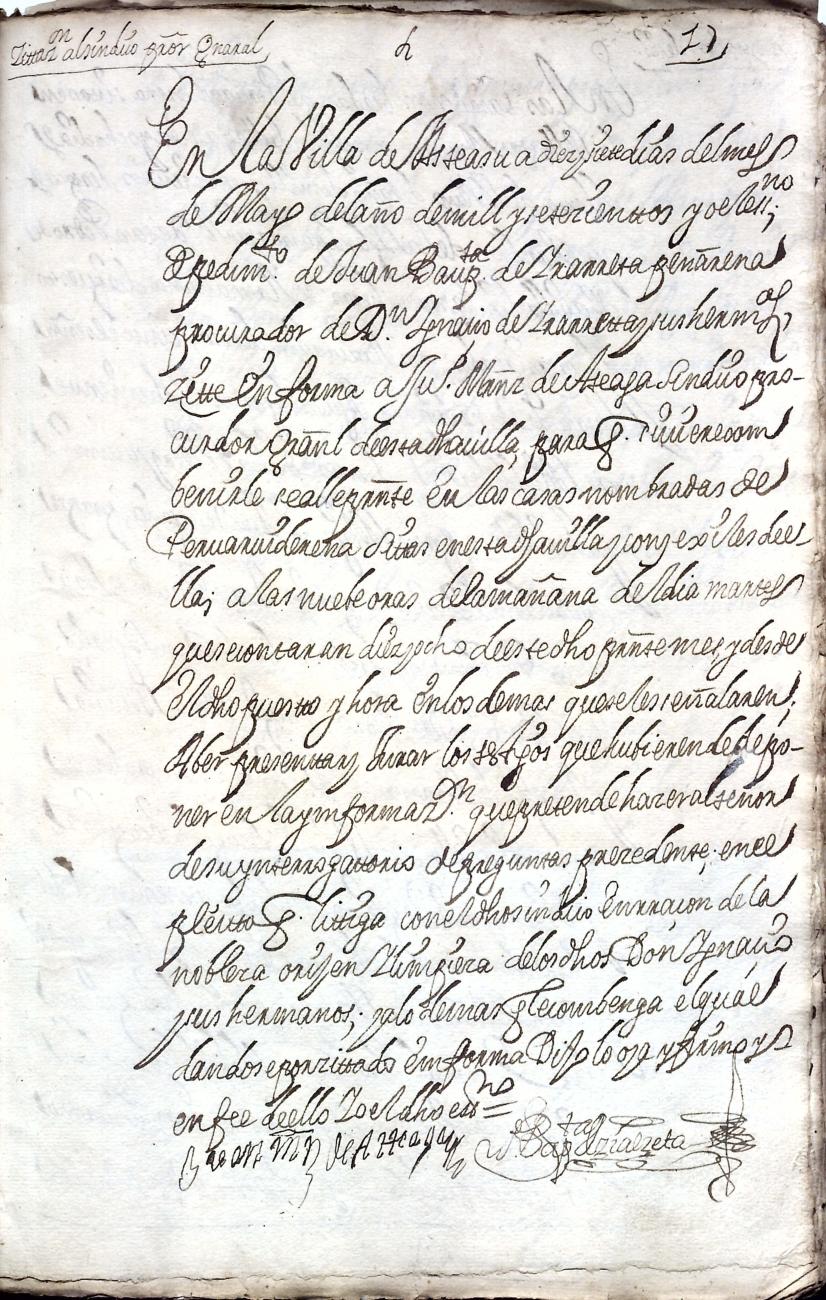 Zittaz.on al sindico pror General
17
En la Villa de Asteasu a diez y siete dias del mes
de Mayo del año de mill y setecientos y oc
A pedim.to de Juan Baup.ta de Yrarreta peñarena
procurador de D.n Ygnacio de Yrarreta y sus herm.os
zite En forma a Ju.o Mrñz de Ateaga sindico pro-
curador Gränl de esta dha villa, para q. si uviere com
benirle se alle preste en las casas nombradas de
sitas en esta dha villa y de e-
lla; a las nuebe oras de la mañana del dia martes
que se contaran diez y ocho de este dho prnte mes, y desde
El dho puesto y hora en los demas que se les señalaren;
A ber presentar y Jurar los testigos que hubieren de depo-
ner en la ynformaz.on que pretende hazer al tenor
de su ynterrogatorio de preguntas prezedente; en el
pleitto q. littiga con el dho sindico en rraçon de la
nobleza orijen y limpieza de los dhos Don Ygnacio
y sus hermanos; y a lo demas q le combenga el qual
dandose por zittado en forma Dijo lo oya y firmo y
en fee de ello Yo el dho ess.no =
Juan Mrñ de Atteaga